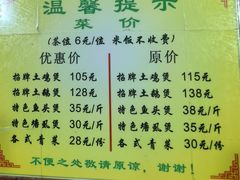 温馨提示
菜价
(茶位 6元/位 米饭不收费)
优惠价 原价
招牌土鸡煲 105元 招牌土鸡煲 115元
招牌土鹅煲 128元 招牌土鹅煲 138元
特色鱼头煲 35元/斤 特色鱼头煲 38元/斤
特色塘虱煲 35元/斤 特色塘虱煲 38元/斤
各式青菜 28元/份 各式青菜 30元/份
不便之处敬请原谅,谢谢!